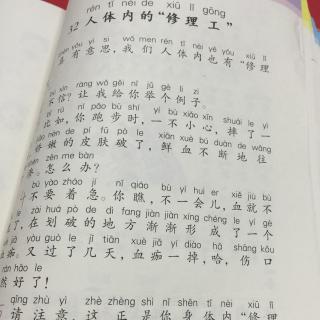 rén tǐ nèi de xiū lǐ gōng
32 人体内的“修理工”
yǒu yì si wǒ men rén tǐ nèi yě yǒu xiū lǐ
真有意思，我们人体内也有“修理
xìn ràng wǒ gěi nǐ jǔ gè lì zi
不信？让我给你举个例子。
rú nǐ pǎo bù shí yí bù xiǎo xīn shuāi le yì
比如，你跑步时，一不小心，摔了一
nèn de pí fū pò le xiān xuè bú duàn de wǎng
嫩的皮肤破了，鲜血不断地往
zěn me bàn
怎么办？
bú yào zháo jí nǐ qiáo bù yí huì er xiě jiù bù
不要着急。你瞧，不一会儿，血就不
le zài huá pò de dì fang jiàn jiàn xíng chéng le yí gè
了，在划破的地方渐渐形成了一个
jiā yòu guò le jǐ tiān xuè jiā yí diào hā shāng kǒu
血痂。又过了几天，血痂一掉，哈，伤口
rán hǎo le
然好了！
qǐng zhù yì zhè zhèng shì nǐ shēn tǐ nèi xiū
请注意，这正是你身体内“修理